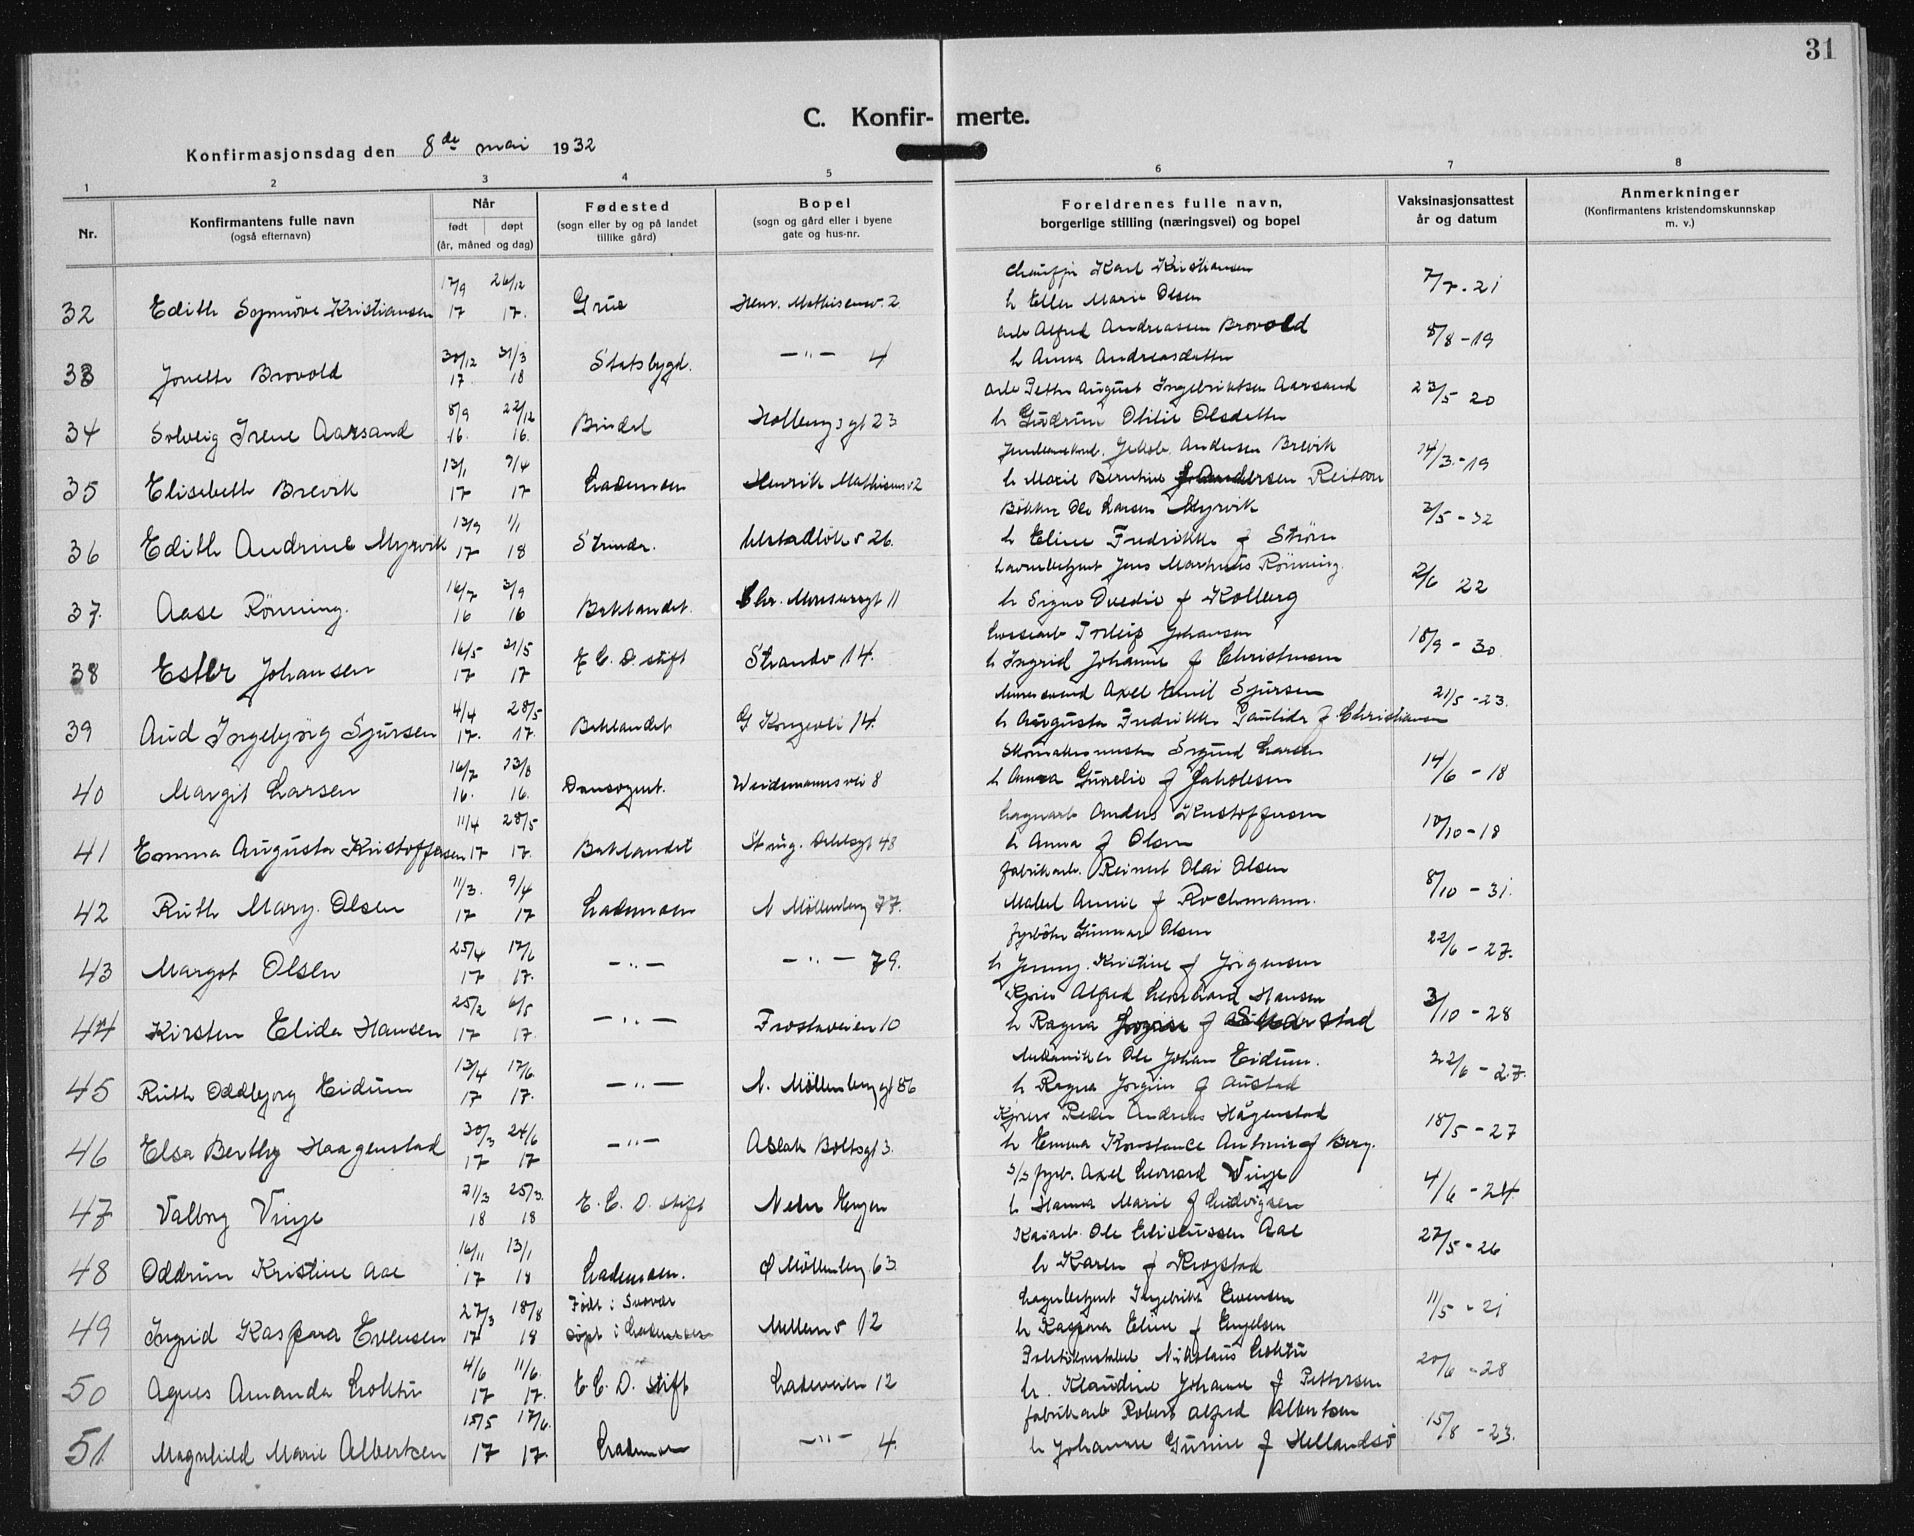 31
C. Konfir- merte.
Konfirmasjonsdag den 8de mai 1932
1 2 3 4 5 6 7 8
Nr.
Konfirmantens fulle navn
(også efternavn)
Når
født døpt
(år, måned og dag)
Fødested
(sogn eller by og på landet
tillike gård)
Bopel
(sogn og gård eller i byene
gate og hus-nr.
Foreldrenes fulle navn,
borgerlige stilling (næringsvei) og bopel
Vaksinasjonsattest
år og datum
Anmerkninger
(Konfirmantens kristendomskunnskap
m. v.)
17/9 26/12 Karl Kristiansen
32 Edith Synnöve Kristiansen 17 17. Grue Henr. Mathisensv. 2 h Ellen Marie Olsen 7/7-21
30/12 31/3 Alfred Andreassen Brovold
33 Brovold 17. 18 Statsbygd. —"— 4 h Anna Andreasdatter 8/8-19
8/9 22/12 Petter August Ingebriktsen Aarsand
34 Solveig Irene Aarsand 16. 16. Bindal gt 23 h Gudrun Otilie Olsdatter 23/5 20
13/1 9/4 Jakob Andersen Brevik
35 Elisabeth Brevik 17 17 Lademoen Henrik Mathisensv 2 h Marie Berntine Reitan 14/3-19
13/9 1/1 Ole Larsen Myrvik
36 Edith Andrine Myrvik 17 18 Strinda. v 26. h Eline Fredrikke f Ström 2/5-32
16/7 3/9 Jens Martinus Rönning.
37. Aase Rönning. 16 16 Baklandet. Chr. Monsensgt 11 h Signe f Kolberg 2/6 22
16/5 21/5 Johansen
38 Ester Johansen 17 17 E C. D. stift Strandv 14. h Ingrid Johanne f Christensen 18/9-30
4/4 28/5 Axel Emil Sjursen
39 Aud Ingebjörg Sjursen 17. 17. Baklandet G Kongevei 14. h Augusta Fredrikke Paulida f Christiansen 21/5-23.
16/7 23/8 Sigurd Larsen
40 Margit Larsen 16. 16. Weidemannsvei 8 h Anna f Jakobsen 14/6-18
11/4 28/5 Anders Kristoffersen
41 Emma Augusta Kristoffersen 17 17. Baklandet gt 48 h Anna f Olsen 10/10-18
11/3. 9/4 fabrikarb. Reinert Olai Olsen
42 Ruth Mary. Olsen 17 17 Lademoen N Möllenberg 77. Mabel Annie f Rochmann. 8/10-31.
25/4 17/6 fyrböter Gunnar Olsen
43 Margot Olsen 17 17. —"— —"— 79. h Jenny. Kristine f Jörgensen 22/6-27.
25/2 6/5 Alfred Leonhard Hansen
44 Kirsten Elida Hansen 17 17. —"— Frostaveien 10 h Ragna f 3/10-28
13/4 17/6. Mekaniker Ole Johan Eidum.
45 Ruth Oddbjorg Eidum 17 17. —"— N. Möllenberggt 86 h Ragna Jorgine f Austad 22/6-27.
30/3 24/6 Peder Andreas Hågenstad
46 Elsa Berthy Haagenstad 17 17 —"— Aslak Boltsgt 3. h Emma Konstance f Berg. 18/5-27
21/3 25/3. s/s fyrb. Axel Leonard Vinje
47 Valborg Vinje 18 18 E. C. D. stift Nedre Engen h Hanna Marie f Ludvigsen 4/6-24
16/11 13/1 Kaiarb. Ole Aae
48 Oddrun Kristine Aae 17 18 Lademoen. Ø Möllenberg 63 h Karen f Krogstad 27/5-26
27/3 18/8 Födt i Lagerbetjent Ingebrikt Evensen
49 Ingrid Kaspara Evensen 17 18 döpt i Lademoen Mellemv 12 h Kaspara Eline f Engelsen 11/5-21
4/6 11/6. Nikolaus Loktu
50 Agnes Amanda Loktu 17 17. E. C. D. stift Ladeveien 12 h. Klaudine Johanne f Pettersen 20/6-28
15/5 17/6. fabrikarb Robert Alfred Albertsen
51 Magnhild Marie Albertsen 17 17. Lademoen —"— 4. h Johanne Gurine f Hellandsö 15/8-23.